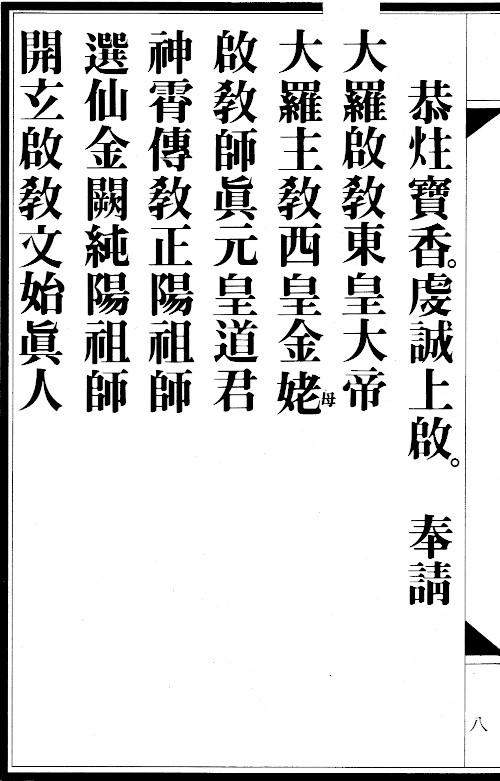 恭炷寶香。虔誠上啟。　奉請
大羅啟敎東皇大帝
大羅主敎西皇金姥母
啟敎師眞元皇道君
神霄傳敎正陽祖師
選仙金闕純陽祖師
開玄啟敎文始眞人
八